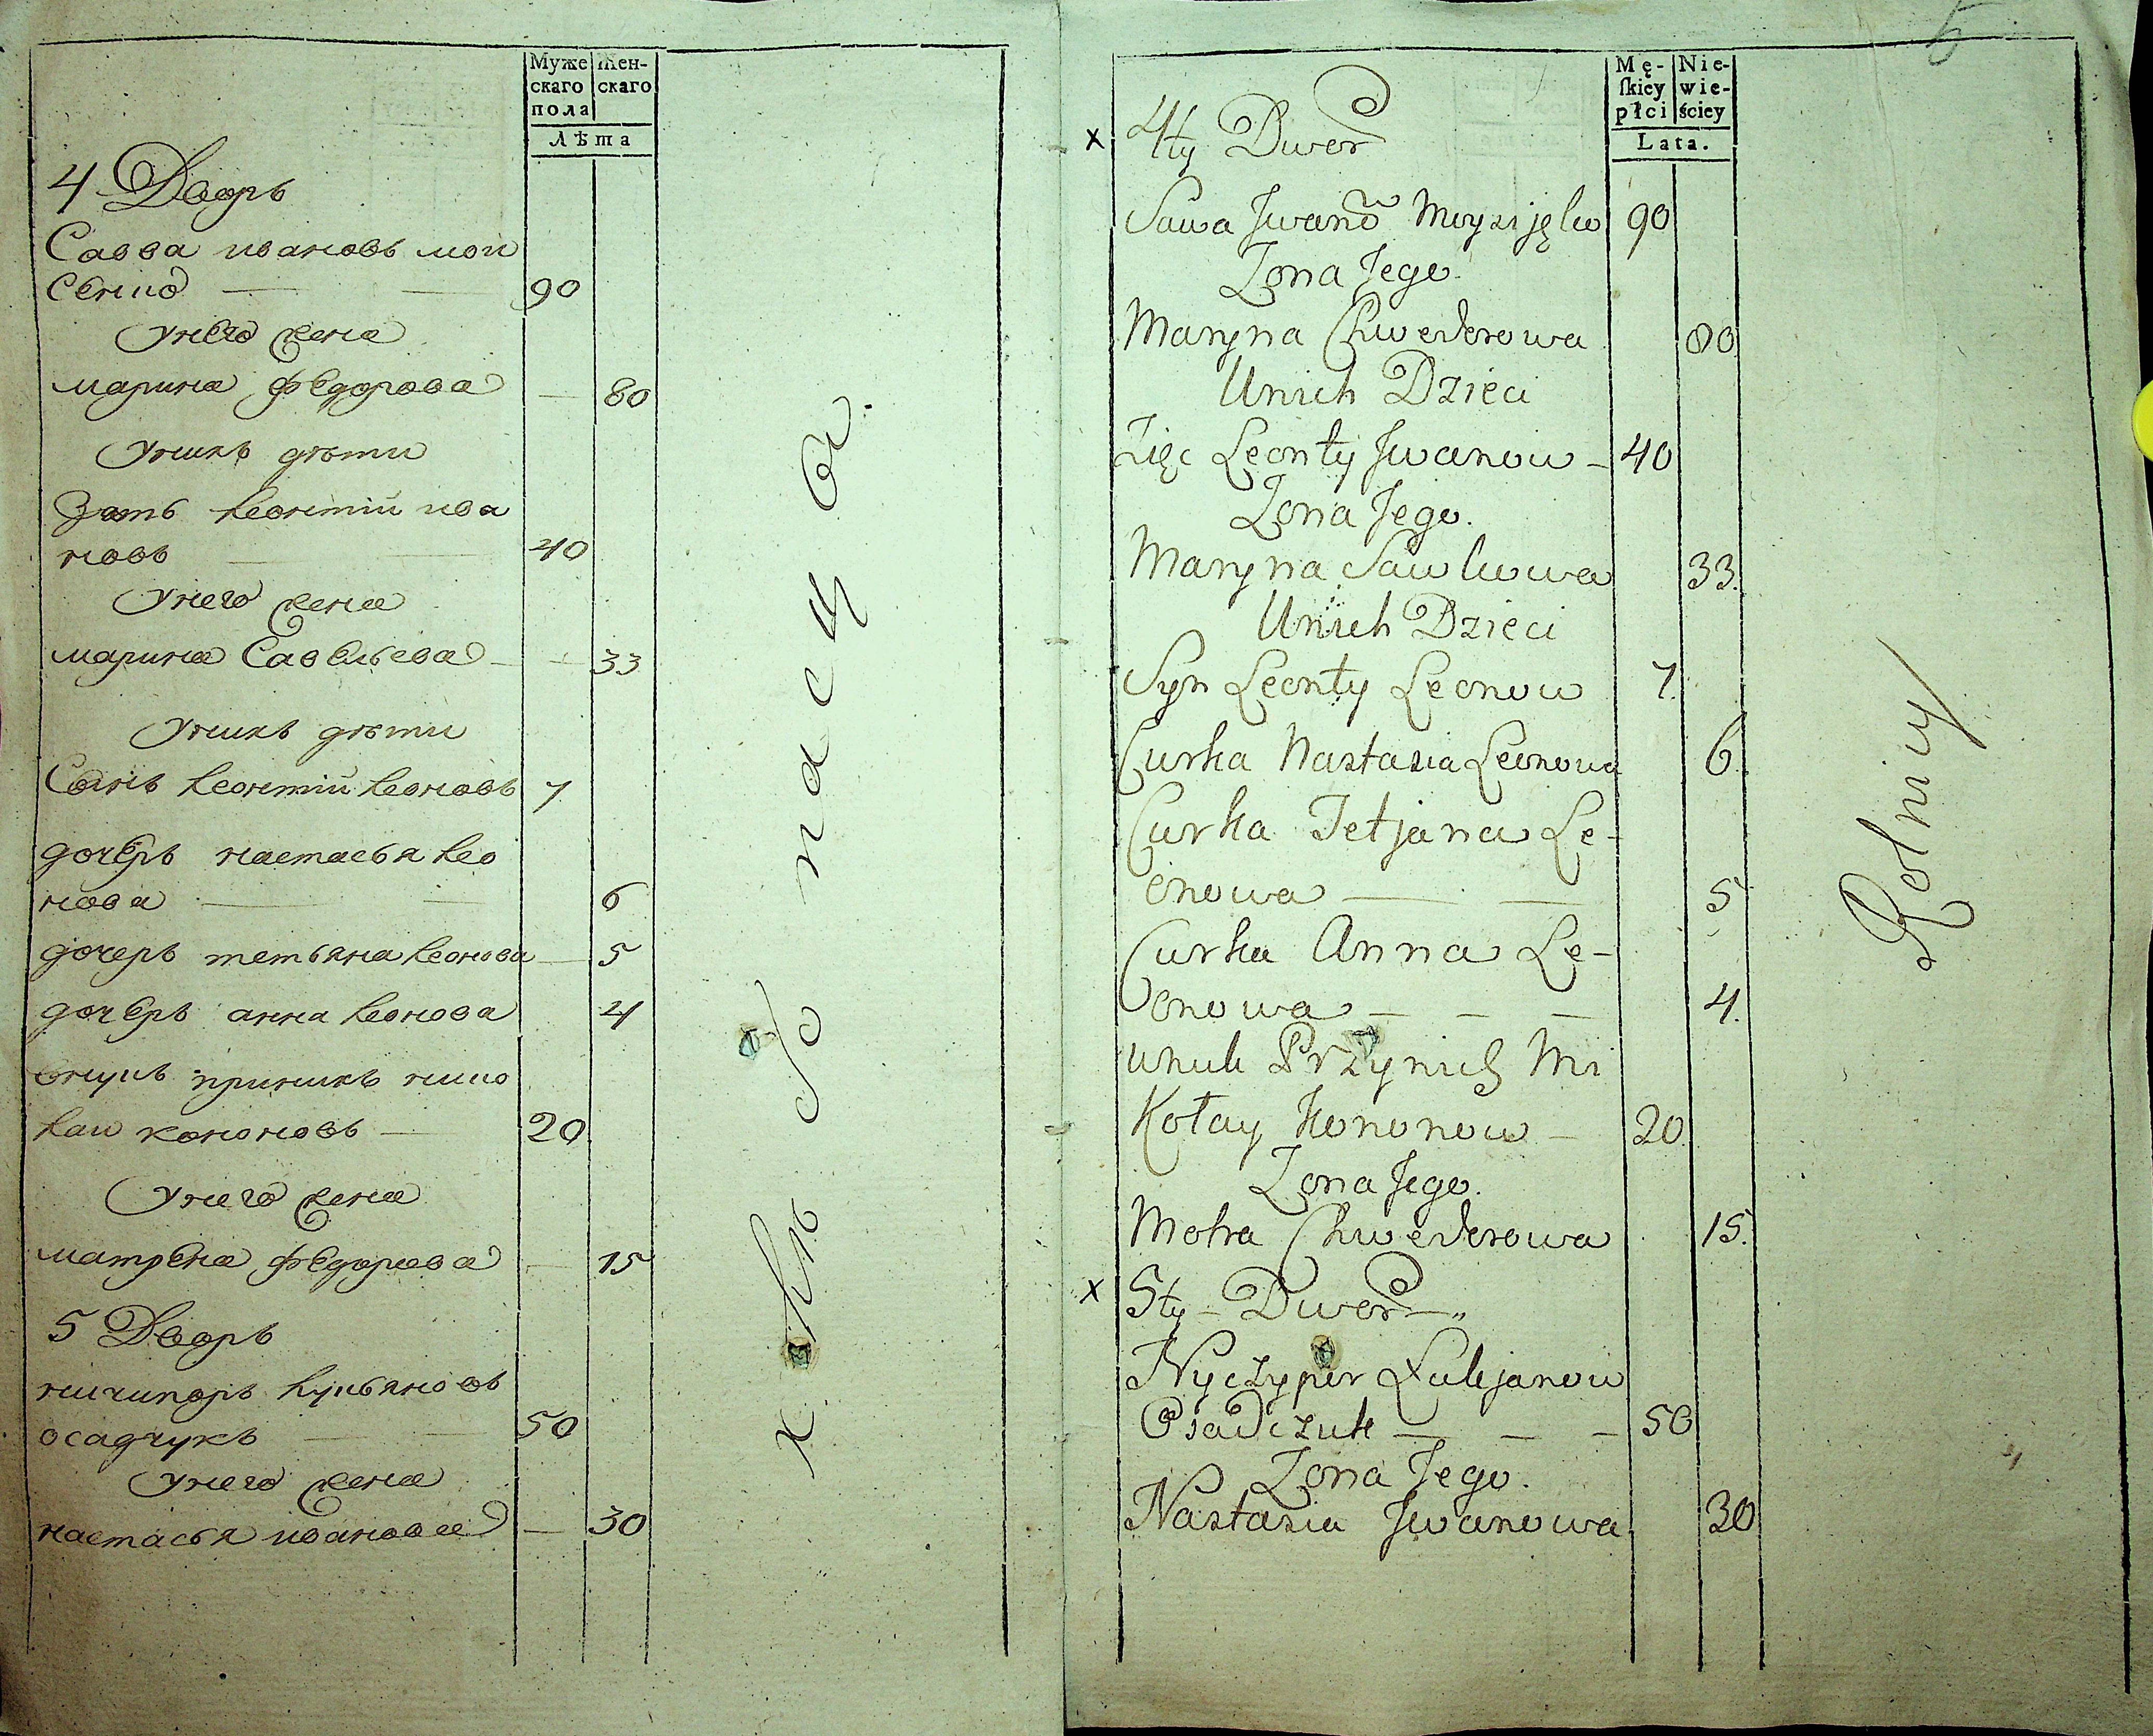 Муже
скаго
пола
Жен-
скаго
Лѣта
4 Дворъ
Савва ивановъ мои
сеенко 90
Унего жена
марина федорова 80
Унихъ дѣти
Зять леонтіи ива
новъ 40
Унего жена
марина Савельева 33
Унихъ дѣти
Сынъ леонтіи леоновъ 7
дочерь настасья лео
нова 6
дочерь тетьяна леонова 5
дочерь анна леонова 4
внукъ принихъ нико
лаи кононовъ 20
Унего жена
матрена федорова 15
5 Дворъ
ничипоръ лукьяновъ
осадчукъ 50
Унего жена
настасья иванова 30
хлѣбопасцы
5
Mę-
skiey
płci
Nie-
wie-
ściey
Lata.
x 4ty Dwor
Sawa Jwano Moysijęko 90
Zona Jego.
Maryna Chwederowa 80
Unich Dzieci
Zięc Leonty Jwanow - 40
Zona Jego.
Maryna Sawlowa 33.
Unich Dzieci
Syn Leonty Leonow 7.
Curka Nastasia Leonowa 6.
Curka Tetjana Le-
onowa 5
Curka Anna Le-
onowa - - - 4.
wnuk Przynich Mi
Kołay Kononow - 20.
Zona Jego.
Motra Chwederowa 15.
x 5ty - Dwor - „
Nyczypor Lukjanow
Osadczuk - - - 50
Zona Jego.
Nastasia Jwanowa 30
Rolnicy